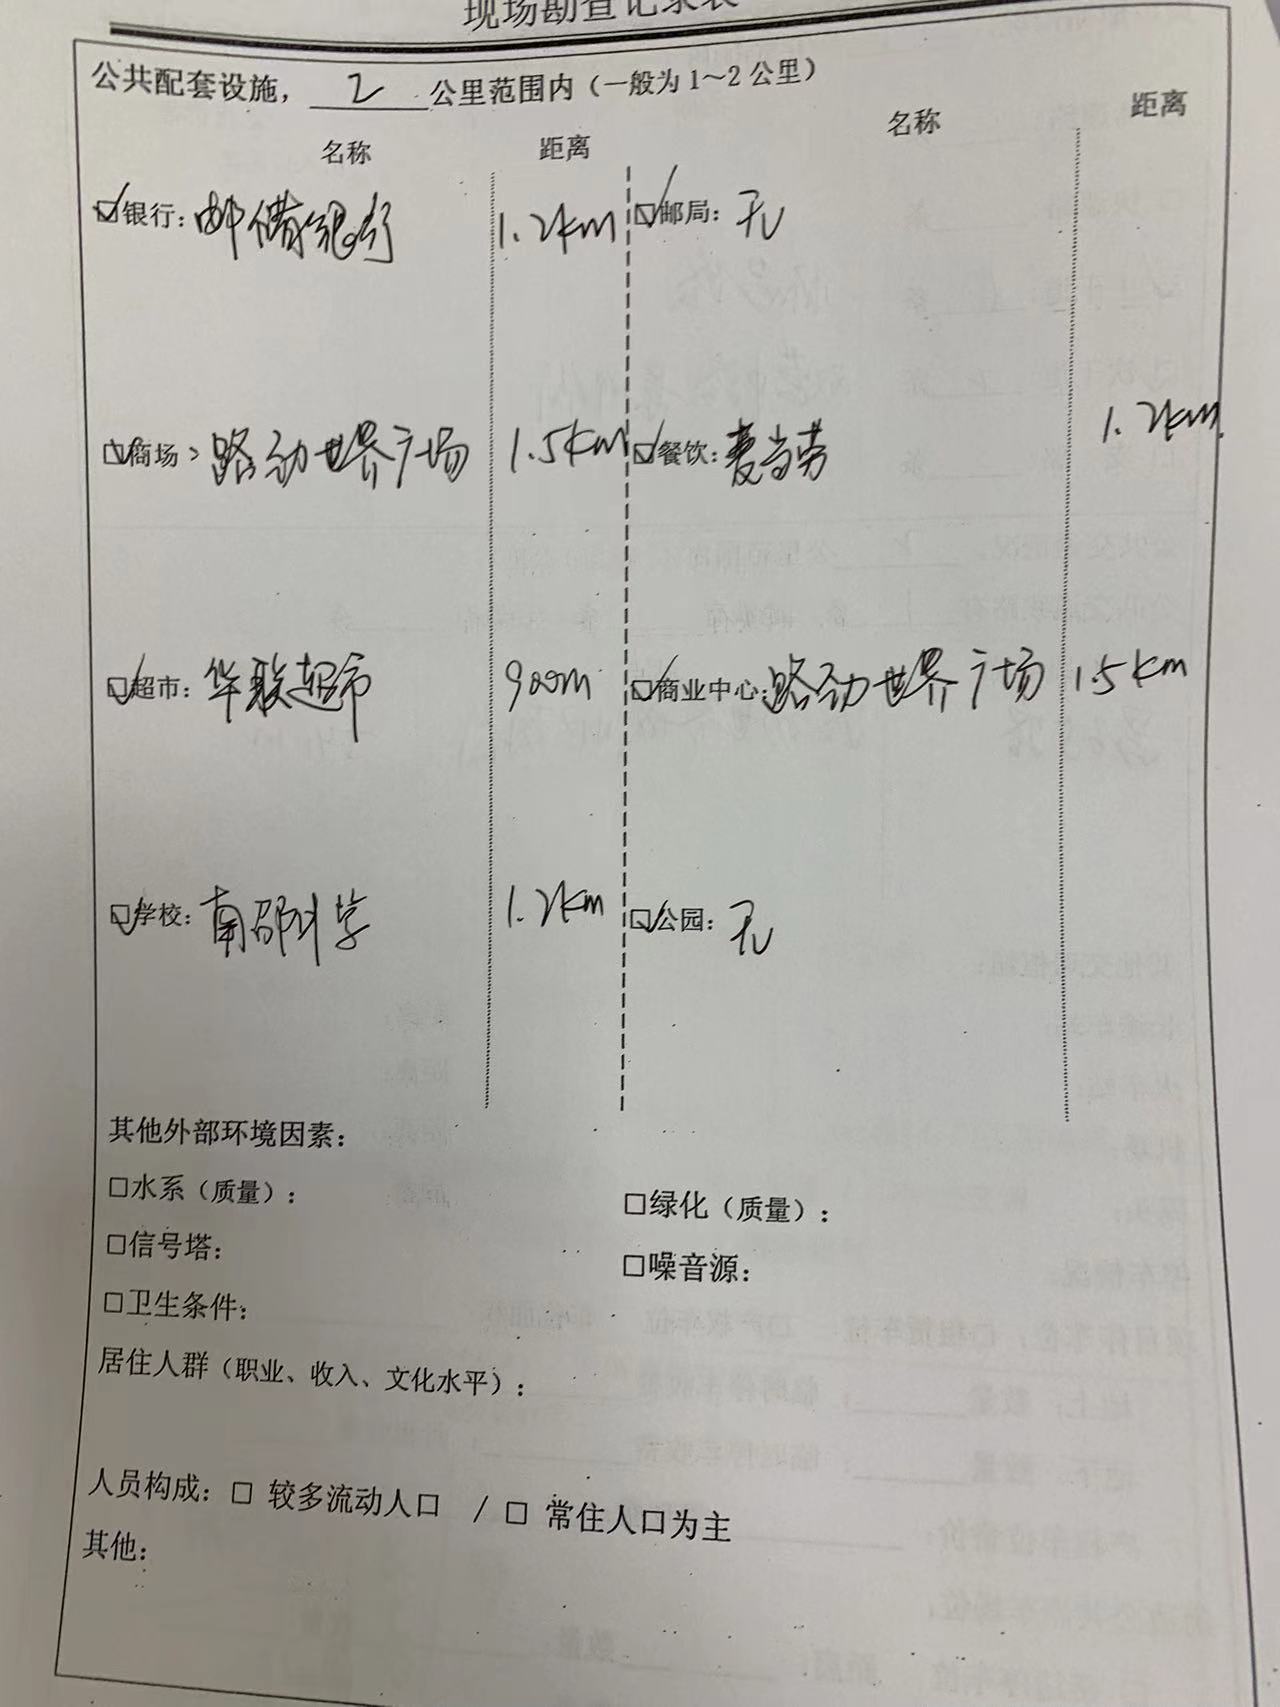 现场勘查记录表
公共配套设施， 2 公里范围内（一般为 1～2 公里）
名称 距离 名称 距离
☑银行：邮储银行 1.2km ☑邮局：无
☑商场：路劲世界广场 1.5km ☑餐饮：麦当劳 1.2km
☑超市：华联超市 900m ☑商业中心：路劲世界广场 1.5km
☑学校：南邵中学 1.2km ☑公园：无
其他外部环境因素：
□水系（质量）： □绿化（质量）：
□信号塔： □噪音源：
□卫生条件：
居住人群（职业、收入、文化水平）：
人员构成：□ 较多流动人口 / □ 常住人口为主
其他：